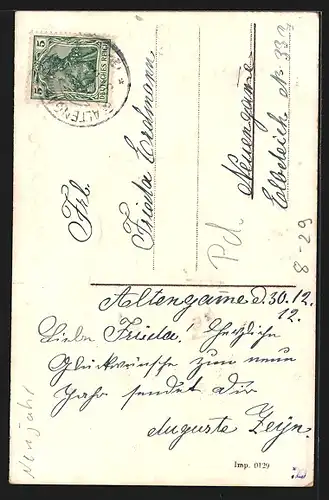 5 5
DEUTSCHES REICH
ALTENG
Frl.
Frieda Erdmann
Neuengamme
Elbdeich No 33a
Altengamme d. 30.12.
12.
Liebe Frieda! Herzliche
Glückwünsche zum neuen
Jahr sendet Dir
Auguste Zeyn.
Imp. 0129
Neujahr
8-29